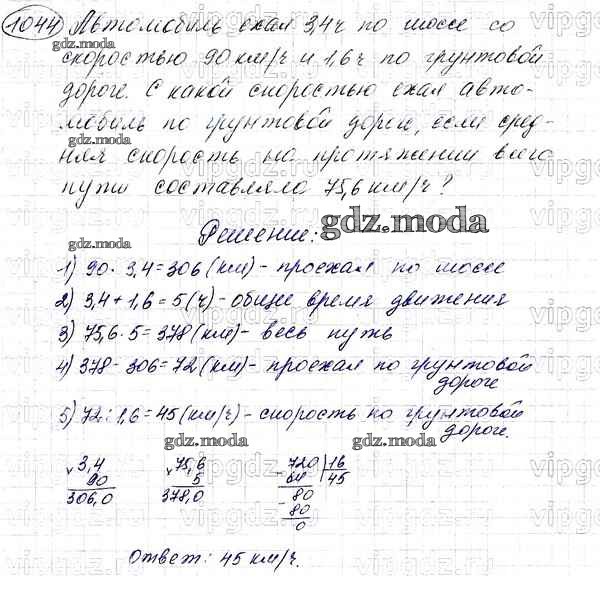 1044 Автомобиль ехал 3,4ч по шоссе со
gdz.moda
скоростью 90 км/ч и 1,6ч по грунтовой
дороге. С какой скоростью ехал авто-
мобиль по грунтовой дороге, если сред-
gdz.moda
няя скорость на протяжении всего
пути составляла 75,6 км/ч?
Решение:
gdz.moda
gdz.moda
1) 90 · 3,4 = 306 (км) - проехал по шоссе
2) 3,4 + 1,6 = 5 (ч) - общее время движения
3) 75,6 · 5 = 378 (км) - весь путь
4) 378 - 306 = 72 (км) - проехал по грунтовой
дороге
gdz.moda
5) 72 : 1,6 = 45 (км/ч) - скорость по грунтовой
дороге.
gdz.moda
gdz.moda
× 3,4
90
306,0
× 75,6
5
378,0
- 720 | 16
64 45
- 80
80
0
Ответ: 45 км/ч.